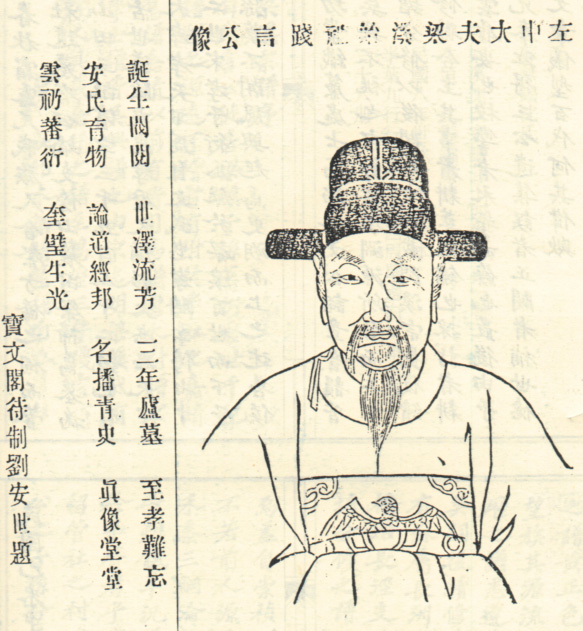 左中大夫梁溪始遷踐言公像
誕生閥閱 世澤流芳 三年廬墓 至孝難忘
安民育物 論道經邦 名播青史 眞像堂堂
雲礽蕃衍 奎璧生光
寶文閣待制劉安世題